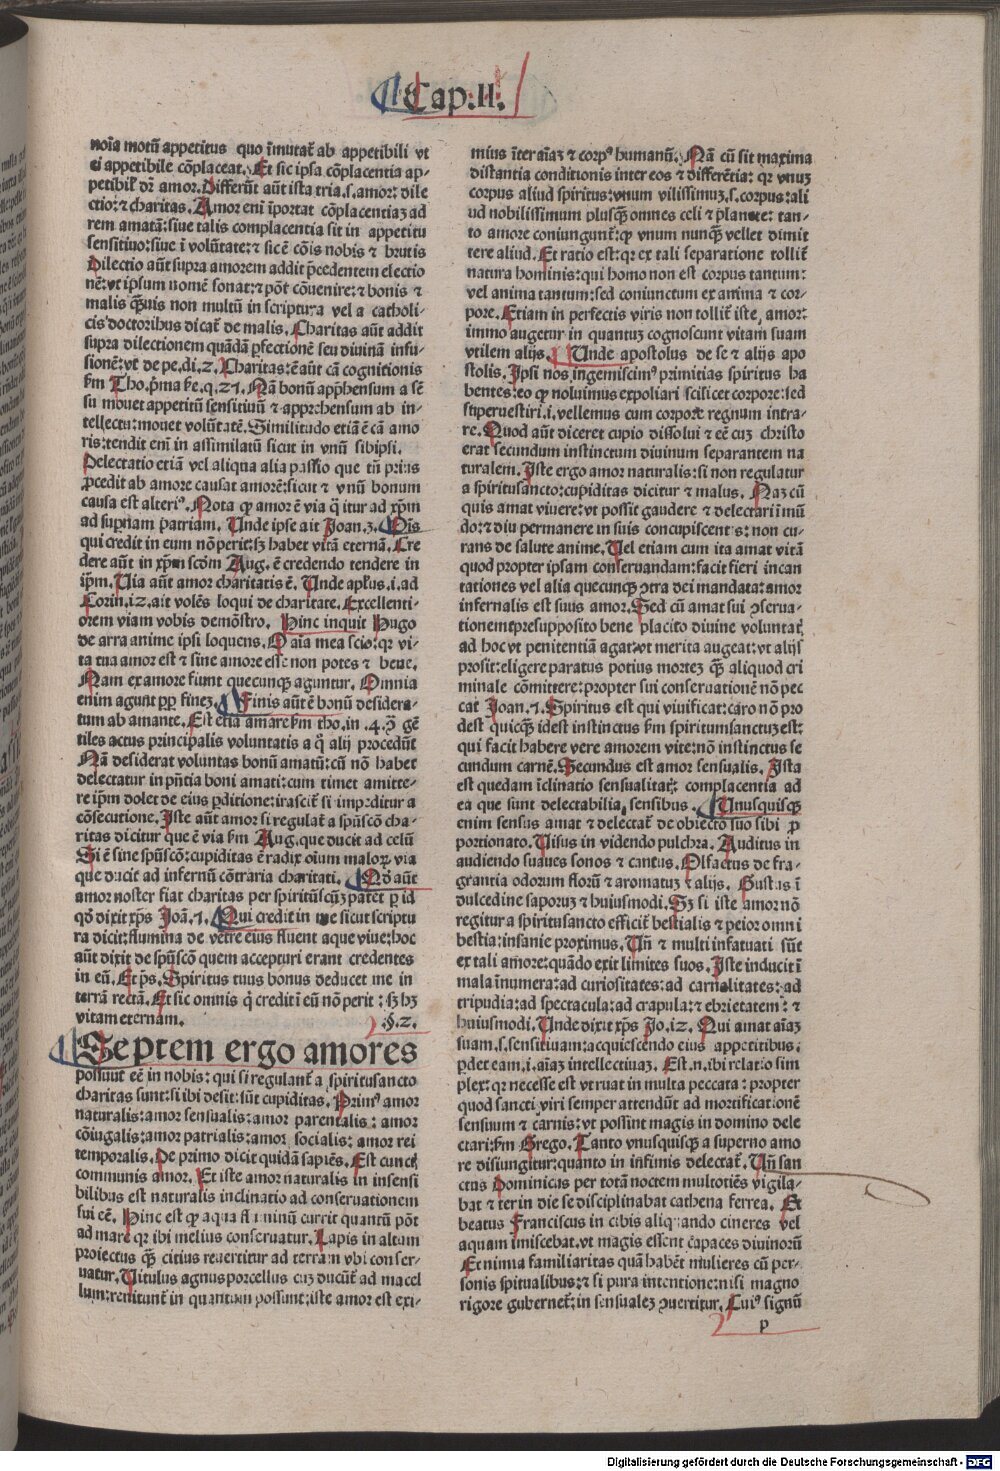 Cap.II.
noīa motū appetitus quo īmutat᷑ ab appetibili vt
ei appetibile cōplaceat. Et sic ipsa cōplacentia ap⸗
petibil᷑ dr̄ amor. Differūt aūt ista tria.s.amor: dile
ctio: ⁊ charitas. Amor eni īportat cōplacentiaꝫ ad
rem amatā: siue talis complacentia sit in appetitu
sensitiuo: siue ī volūtate: ⁊ sic ē cōis nobis ⁊ brutis
Dilectio aūt supra amorem addit p̄cedentem electio
nē: vt ipsum nomē sonat: ⁊ pōt cōuenire: ⁊ bonis ⁊
malis qꝫuis non multū in scriptura vel a catholi⸗
cis doctoribus dicat᷑ de malis. Charitas aūt addit
supra dilectionem quādā ꝑfectionē seu diuinā infu⸗
sionē: vt de pe.di.2. Charitas: ē aūt cā cognitionis
ẜm Tho.p̄ma ẜe.q.27. Nā bonū app̄hensum a sē
su mouet appetitū sensitiuū ⁊ apprehensum ab in⸗
tellectu: mouet volūtatē. Similitudo etiā ē cā amo
ris: tendit eni in assimilatū sicut in vnū sibipsi.
Delectatio etiā vel aliqua alia passio que tn̄ prius
p̄cedit ab amore causat amorē: sicut ⁊ vnū bonum
causa est alteriꝰ. Nota ꝙ amor ē via q̄ itur ad xp̄m
ad sup̄nam patriam. Unde ipse ait Joan.3. Ois
qui credit in eum nō perit: sꝫ habet vitā eternā. Cre
dere aūt in xp̄m scd̄m Aug. ē credendo tendere in
ip̄m. Uia aūt amor charitatis ē. Unde apl̄us.i.ad
Corin.12.ait volēs loqui de charitate. Excellenti⸗
orem viam vobis demōstro. Hinc inquit Hugo
de arra anime ipsi loquens. O aīa mea scio: qꝛ vi⸗
ta tua amor est ⁊ sine amore esse non potes ⁊ bene.
Nam ex amore fiunt quecunqꝫ aguntur. Omnia
enim agunt ꝓp̄ fineꝫ. Finis aūt ē bonū desidera⸗
tum ab amante. Est etiā amare ẜm tho.in.4.ꝯ gē
tiles actus principalis voluntatis a q̄ alij procedūt
Nā desiderat voluntas bonū amatū: cū nō habet
delectatur in pn̄tia boni amati: cum timet amitte⸗
re ip̄m dolet de eius ꝑditione: irascit᷑ si impeditur a
cōsecutione. Iste aūt amor si regulat᷑ a spūscō cha⸗
ritas dicitur que ē via ẜm Aug.que ducit ad celū
Si ē sine spūscō: cupiditas ē radix oium maloꝝ via
que ducit ad infernū cōtraria charitati. Qō aūt
amor noster fiat charitas per spiritūscūꝫ patet ꝑ id
qd̄ dixit xp̄s Joā.7. Qui credit in me sicut scriptu
ra dicit: flumina de vētre eius fluent aque viue: hoc
aūt dixit de spūscō quem accepturi erant credentes
in eū. Et ps. Spiritus tuus bonus deducet me in
terrā rectā. Et sic omnis q̄ credit ī eū nō perit: sꝫ hꝫ
vitam eternam. .§.2.
Septem ergo amores
possunt eē in nobis: qui si regulant᷑ a spiritusancto
charitas sunt: si ibi desit: sūt cupiditas. Primꝰ amor
naturalis: amor sensualis: amor parentalis: amor
cōiugalis: amor patrialis: amor socialis: amor rei
temporalis. De primo dicit quidā sapiēs. Est cunct᷑
communis amor. Et iste amor naturalis in insensi
bilibus est naturalis inclinatio ad conseruationem
sui eē. Hinc est ꝙ aqua fluminū currit quantū pōt
ad mare qꝛ ibi melius conseruatur. Lapis in altum
proiectus qꝫ citius reuertitur ad terram vbi conser⸗
uatur. Uitulus agnus porcellus cuꝫ ducūt᷑ ad macel
lum: renitunt᷑ in quantum possunt: iste amor est exi⸗
mius īter aīaꝫ ⁊ corpꝰ humanū. Nā cū sit maxima
distantia conditionis inter eos ⁊ differētia: qꝛ vnuꝫ
corpus aliud spiritus: vnum vilissimuꝫ.s.corpus: ali
ud nobilissimum plusqꝫ omnes celi ⁊ planete: tan⸗
to amore coniungunt᷑: ꝙ vnum nunqꝫ vellet dimit
tere aliud. Et ratio est: qꝛ ex tali separatione tollit᷑
natura hominis: qui homo non est corpus tantum:
vel anima tantum: sed coniunctum ex anima ⁊ cor⸗
pore. Etiam in perfectis viris non tollit᷑ iste amor:
immo augetur in quantuꝫ cognoscunt vitam suam
vtilem alijs. Unde apostolus de se ⁊ alijs apo
stolis. Ipsi nos ingemiscimꝰ primitias spiritus ha
bentes: eo ꝙ noluimus expoliari scilicet corpore: sed
supervestiri.i.vellemus cum corpore regnum intra⸗
re. Quod aūt diceret cupio dissolui ⁊ eē cuꝫ christo
erat secundum instinctum diuinum separantem na
turalem. Iste ergo amor naturalis: si non regulatur
a spiritusancto: cupiditas dicitur ⁊ malus. Naꝫ cū
quis amat viuere: vt possit gaudere ⁊ delectari ī mū
do: ⁊ diu permanere in suis concupiscentijs: non cu⸗
rans de salute anime. Uel etiam cum ita amat vitā
quod propter ipsam conseruandam: facit fieri incan
tationes vel alia quecunqꝫ ꝯtra dei mandata: amor
infernalis est suus amor. Sed cū amat sui ꝯserua⸗
tionem: presupposito bene placito diuine voluntat᷑
ad hoc vt penitentiā agat: vt merita augeat: vt alijs
prosit: eligere paratus potius morteꝫ qꝫ aliquod cri
minale cōmittere: propter sui conseruationē nō pec
cat Joan.7. Spiritus est qui viuificat: caro nō pro
dest quicqꝫ idest instinctus ẜm spiritumsanctuꝫ est:
qui facit habere vere amorem vite: nō instinctus se
cundum carnē. Secundus est amor sensualis. Ista
est quedam īclinatio sensualitat᷑: complacentia ad
ea que sunt delectabilia sensibus. Unusquisqꝫ
enim sensus amat ⁊ delectat᷑ de obiecto suo sibi ꝓ
portionato. Uisus in videndo pulchra. Auditus in
audiendo suaues sonos ⁊ cantus. Olfactus de fra⸗
grantia odorum florū ⁊ aromatuꝫ ⁊ alijs. Gustus ī
dulcedine saporuꝫ ⁊ huiusmodi. Sꝫ si iste amor nō
regitur a spiritusancto efficit᷑ bestialis ⁊ peior omni
bestia: insanie proximus. Uñ ⁊ multi infatuati sūt
ex tali amore: quādo exit limites suos. Iste inducit ī
mala īnumera: ad curiositates: ad carnalitates: ad
tripudia: ad spectacula: ad crapula: ⁊ ebrietatem: ⁊
huiusmodi. Unde dixit xp̄s Jo.12. Qui amat aīaꝫ
suam.s.sensitiuam: acquiescendo eius appetitibus:
ꝑdet eam.i.aīaꝫ intellectiuaꝫ. Est.n.ibi relatio sim
plex: qꝛ necesse est vt ruat in multa peccata: propter
quod sancti viri semper attendūt ad mortificationē
sensuum ⁊ carnis: vt possint magis in domino dele
ctari: ẜm Grego. Tanto vnusquisqꝫ a superno amo
re disiungitur: quanto in infimis delectat᷑. Uñ san
ctus Dominicus per totā noctem multotiēs vigila⸗
bat ⁊ ter in die se disciplinabat cathena ferrea. Et
beatus Franciscus in cibis aliquando cineres vel
aquam imiscebat. vt magis essent capaces diuinorū
Et nimia familiaritas quā habēt mulieres cū per⸗
sonis spitualibus: ⁊ si pura intentione: nisi magno
rigore gubernet᷑: in sensualeꝫ ꝯuertitur. Cuiꝰ signū
p
Digitalisierung gefördert durch die Deutsche Forschungsgemeinschaft - DFG